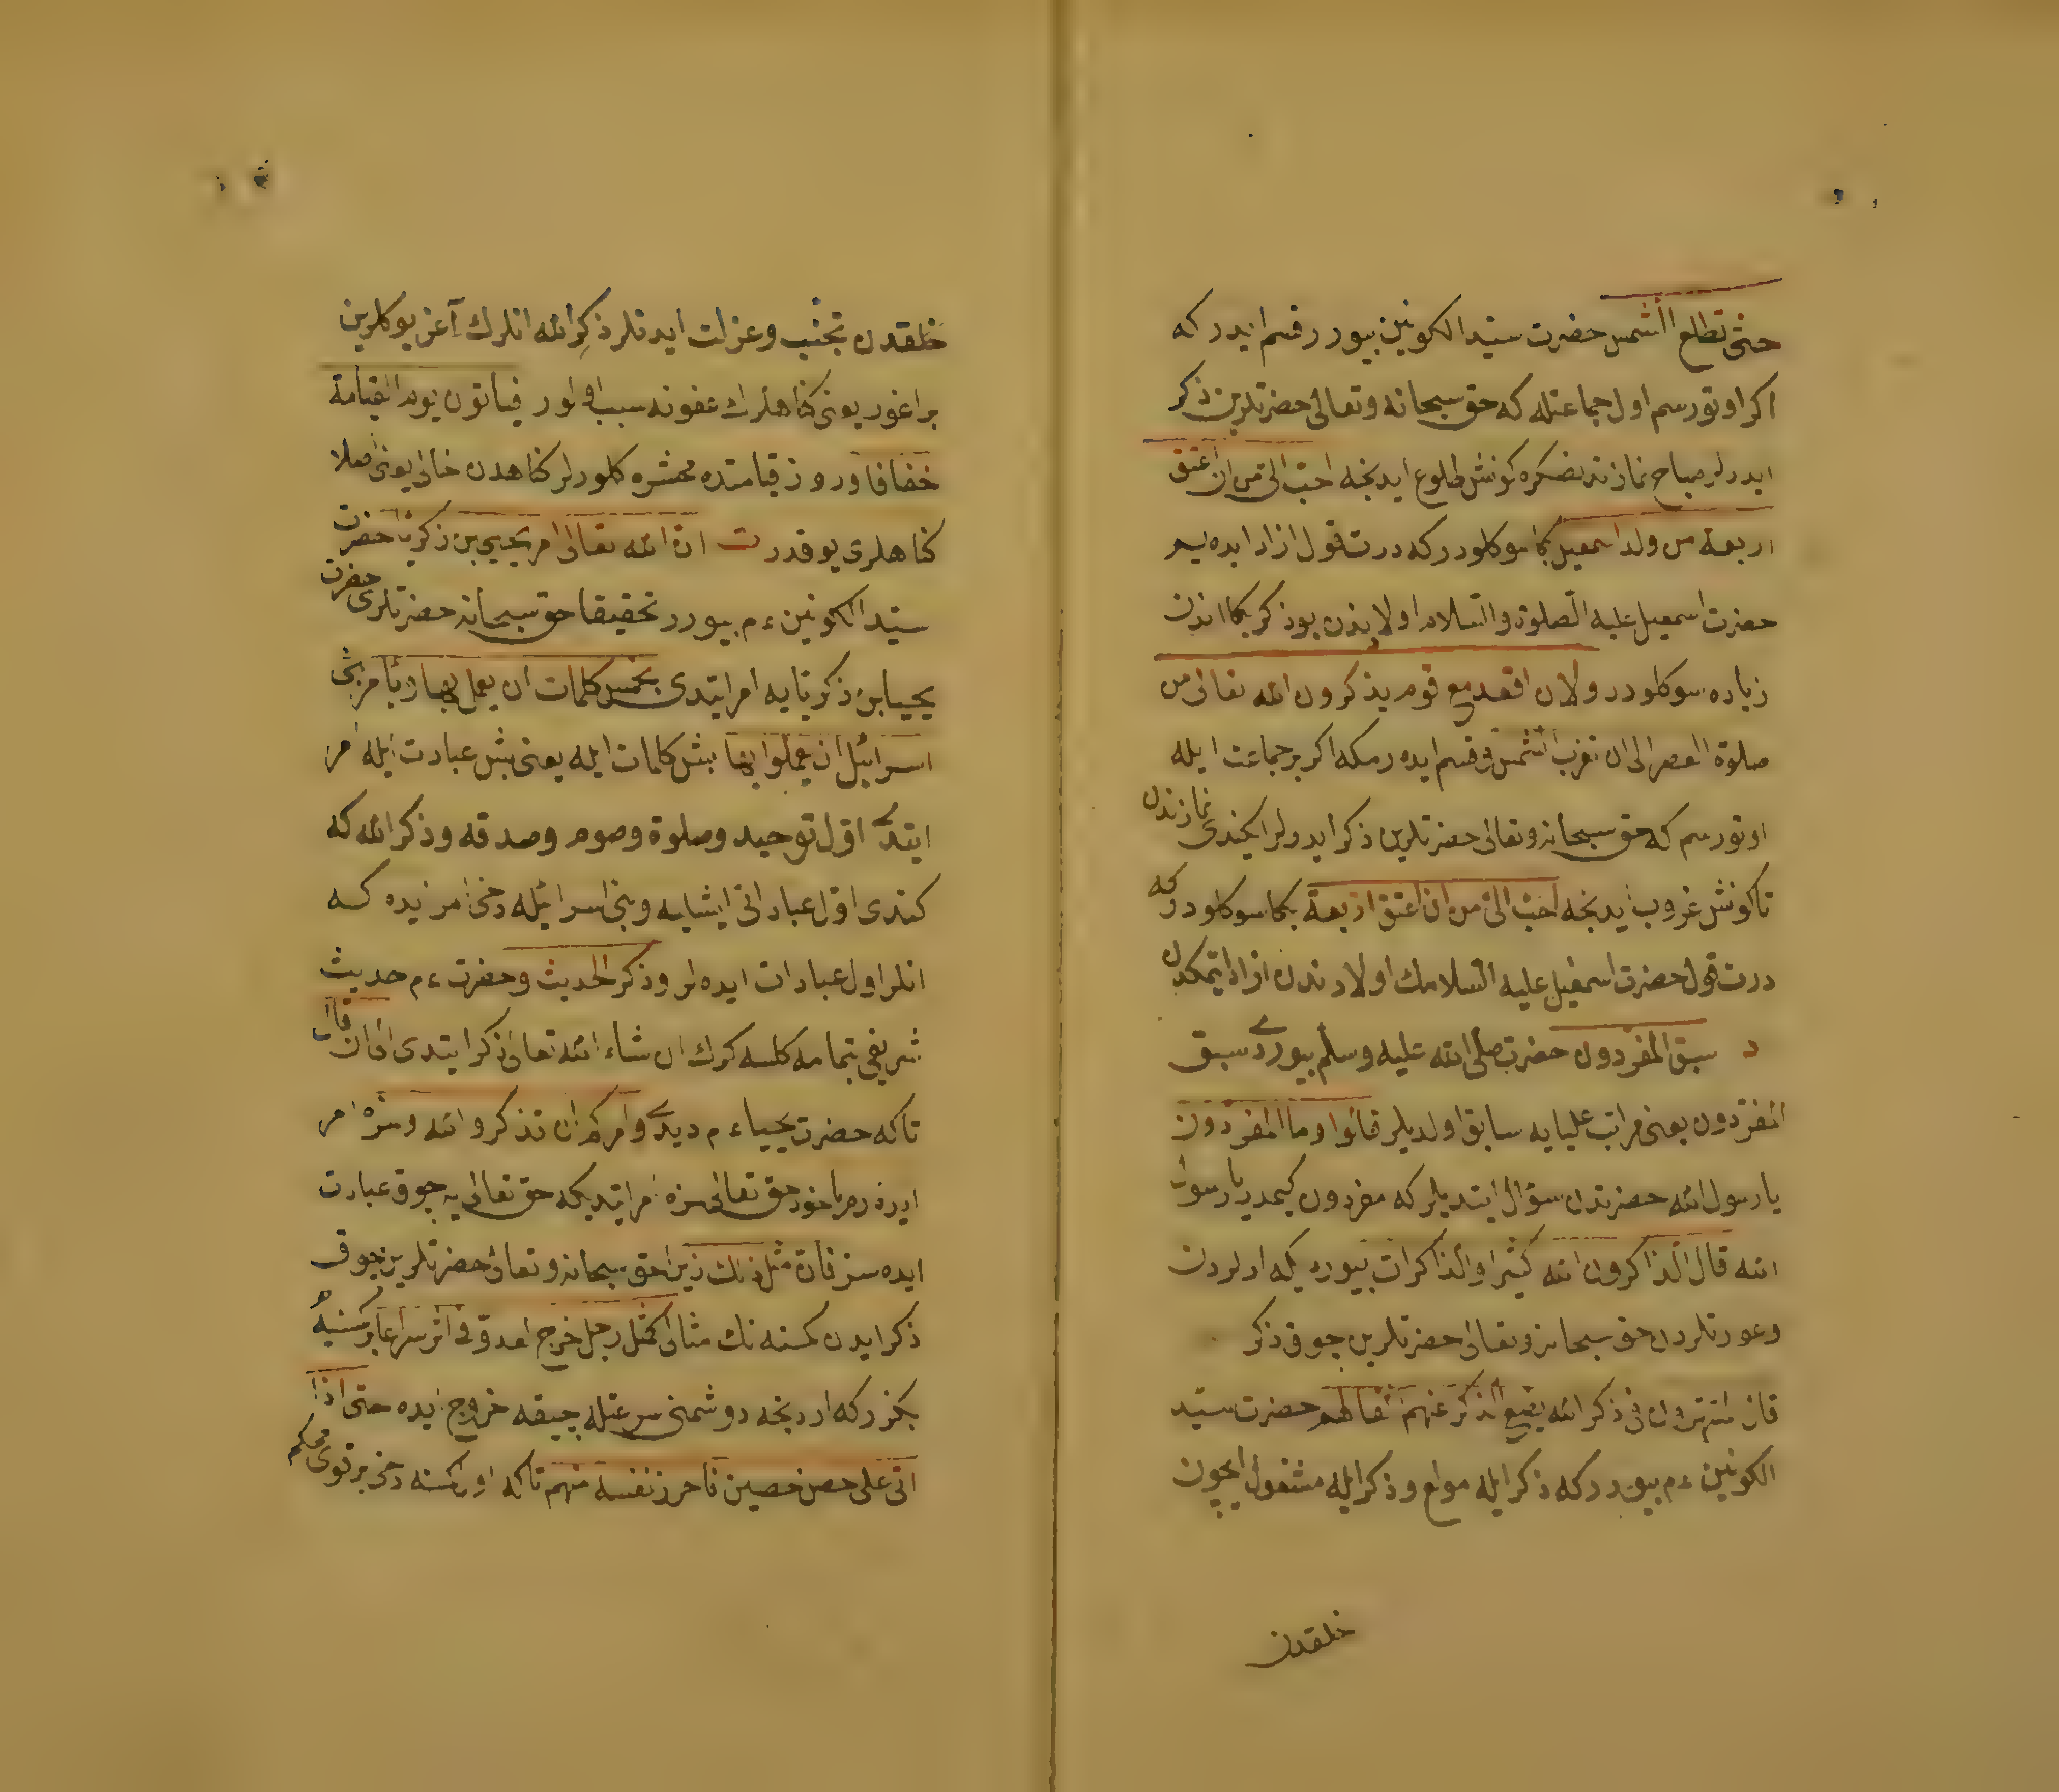 حتى تطلع الشمس حضرت سيد الكونين بيورر قسم ايدر كه
اكر اوتورسم اول جماعتله كه حق سبحانه وتعالى حضرتلرين ذكر
ايدرلر صباح نمازندنصكره كونش طلوع ايدنجه احب الى من ان اعتق
اربعة من ولد اسمعيل بكا سوكلودركه درت قول ازاد ايده يم
حضرت اسمعيل عليه الصلوة والسلام اولادندن بوذكر بكا اندن
زياده سوكلودر ولان اقعد مع قوم يذكرون الله تعالى من
صلوة العصر الى ان تغرب الشمس وقسم ايده رمكه اكر بر جماعت ايله
اوتورسم كه حق سبحانه وتعالى حضرتلرين ذكر ايدرلر ايكندى نمازندن
تا كونش غروب ايدنجه احب الى من ان اعتق اربعة بكا سوكلودر كه
درت قول حضرت اسمعيل عليه السلامك اولادندن ازاد ايتمكدن
د سبق المفردون حضرت صلى الله عليه وسلم بيوردى سبق
المفردون يعنى مراتب عليايه سابق اولديلر قالوا وما المفردون
يا رسول الله حضرتدن سؤال ايتديلر كه مفردون كيمدر يا رسول
الله قال الذاكرون الله كثيرا والذاكرات بيورديكه ارلردن
وعورتلردن حق سبحانه وتعالى حضرتلرين جوق ذكر
فى ذكر الله يضع الذكر عنهم اثقالهم حضرت سيد
الكونين ءم بيورر كه ذكر ايله مولع وذكر ايله مشغول ايچون
خلقدن
خلقدن تجنب وعزلت ايدنلر ذكر الله انلرك آغر يوكلرين
براغور يعنى كناهلرك عفونه سبب اولور فياتون يوم القيامة
خفافا وروز قيامتده محشره كلورلر كناهدن خالى يعنى اصلا
كناهلرى يوقدر ت ان الله تعالى امر يحيى بن ذكريا حضرت
سيد الكونين ءم بيورر تحقيقا حق سبحانه حضرتلرى حضرت
يحيى ابن ذكريايه امر ايتدى بخمس كلمات ان يعمل بها ويامر بنى
اسرائيل ان يعملوا بها بش كلمات ايله يعنى بش عبادت ايله امر
ايتدى اول توحيد وصلوة وصوم وصدقه وذكر الله كه
كندى اول عباداتى ايشليه وبنى اسرائيله دخى امر ايده كه
انلر اول عبادات ايده لر وذكر الحديث وحضرت ءم حديث
شريفى بتمامه كلسه كرك ان شاء الله تعالى ذكر ايتدى الى ان قال
تا كه حضرت يحيى ءم ديدى وامركم ان تذكروا الله وسزه امر
ايدرم يا خود حق تعالى سزه امر ايتديكه حق تعالى يه جوق عبادت
ايده سز فان مثل ذلك زيرا حق سبحانه وتعالى حضرتلرين جوق
ذكر ايدن كمسنه نك مثالى كمثل رجل خرج العدو فى اثره سراعا بر كمسنيه
بكزر كه اردنجه دوشمنى سرعتله چيقه خروج ايده حتى اذا
اتى على حصن حصين فاحرز نفسه منهم تا كه اول كمسنه دخى بر قوى محكم